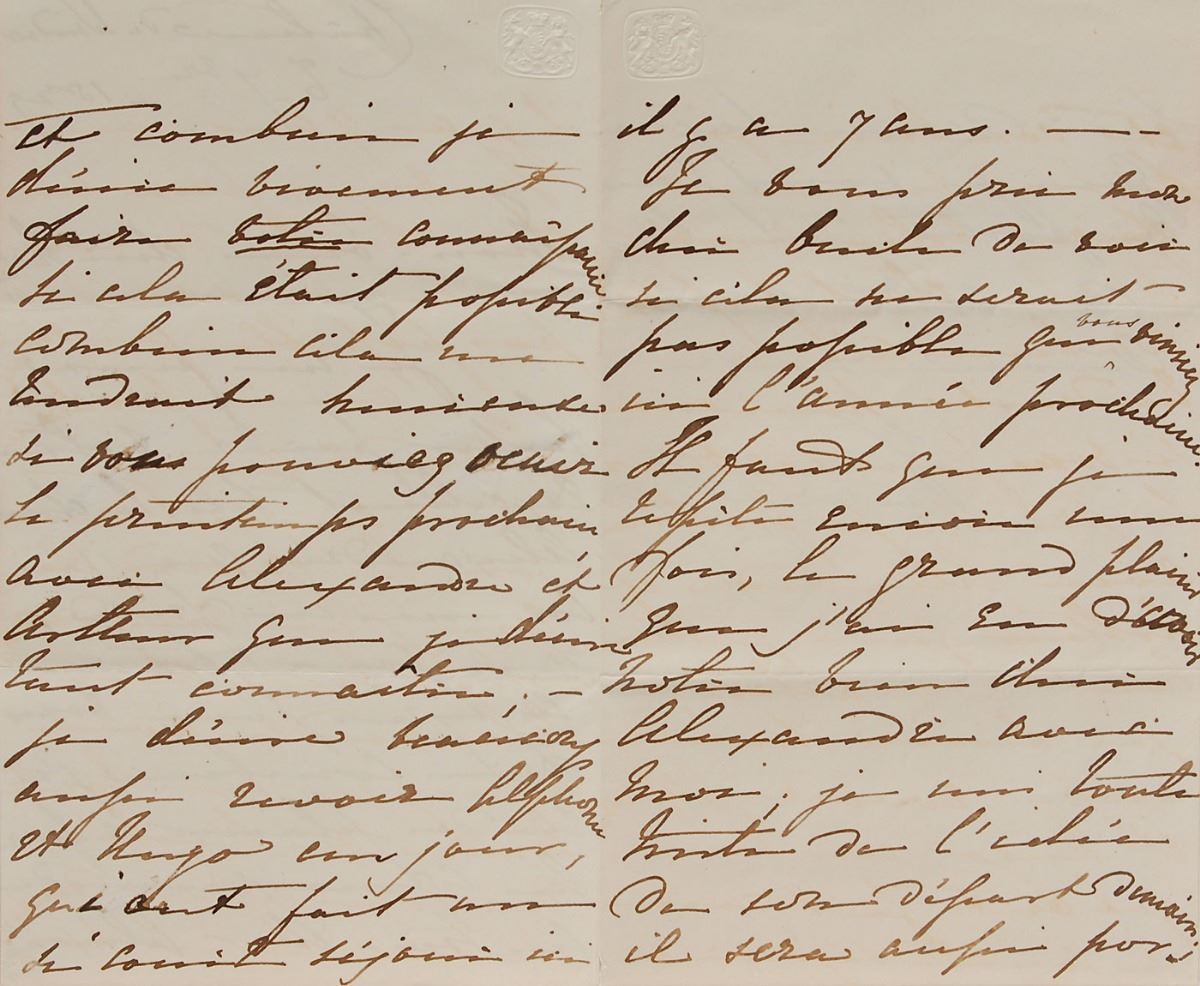 et combien je
désire vivement
faire votre connaissance
si cela était possible
combien cela me
rendrait heureuse
si vous pouviez venir
le printemps prochain
avec Alexandre et
Arthur que je désire
tant connaitre; —
je désire beaucoup
aussi revoir Alphonse
et Hugo un jour,
qui ont fait un
si court séjour ici
il y a 7 ans. —
Je vous prie mon
cher Oncle de voir
si cela ne serait
pas possible que vous veniez
ici l'année prochaine.
Il faut que je
répète encore une
fois, le grand plaisir
que j'ai eu d'avoir
notre bien cher
Alexandre avec
moi; je suis toute
triste de l'idée
de son départ demain;
il sera aussi por-